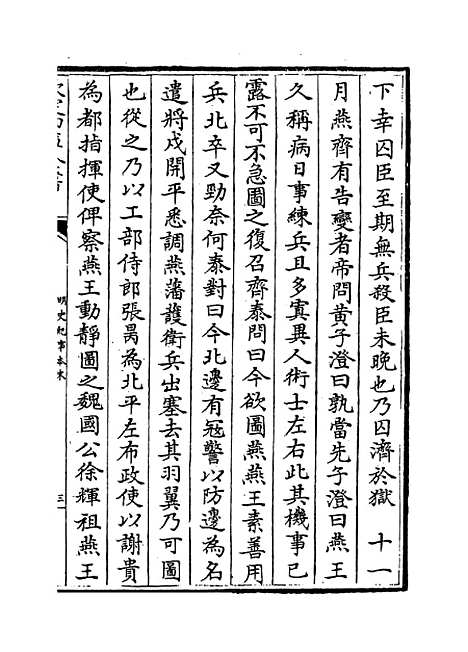 下幸囚臣至期無兵殺臣未晚也乃囚濟於獄　十一
月燕齊有告變者帝問黃子澄曰孰當先子澄曰燕王
久稱病日事練兵且多寘異人術士左右此其機事已
露不可不急圖之復召齊泰問曰今欲圖燕燕王素善用
兵北卒又勁奈何泰對曰今北邊有冦警以防邊為名
遣將戍開平悉調燕藩護衛兵出塞去其羽翼乃可圖
也從之乃以工部侍郎張昺為北平左布政使以謝貴
為都指揮使俾察燕王動靜圖之魏國公徐輝祖燕王
明史紀事本末